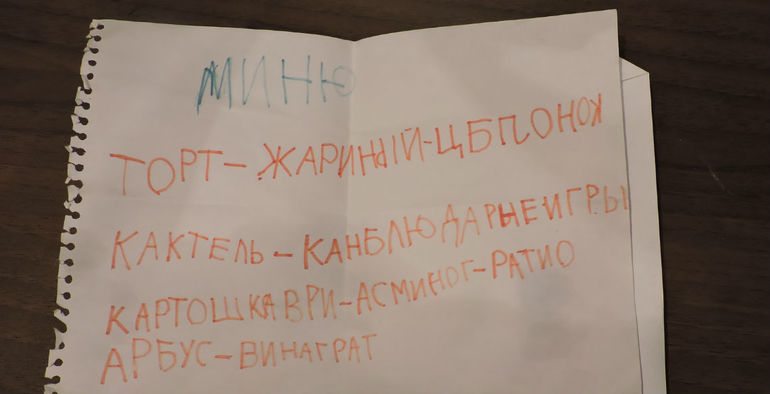 МИНЮ
ТОРТ-ЖАРИНЫЙ-ЦБПОНОК
КАКТЕЛЬ-КАНБЛЮДАРНЕИГРЫ
КАРТОШКАВРИ-АСМИНОГ-РАТИО
АРБУС-ВИНАГРАТ